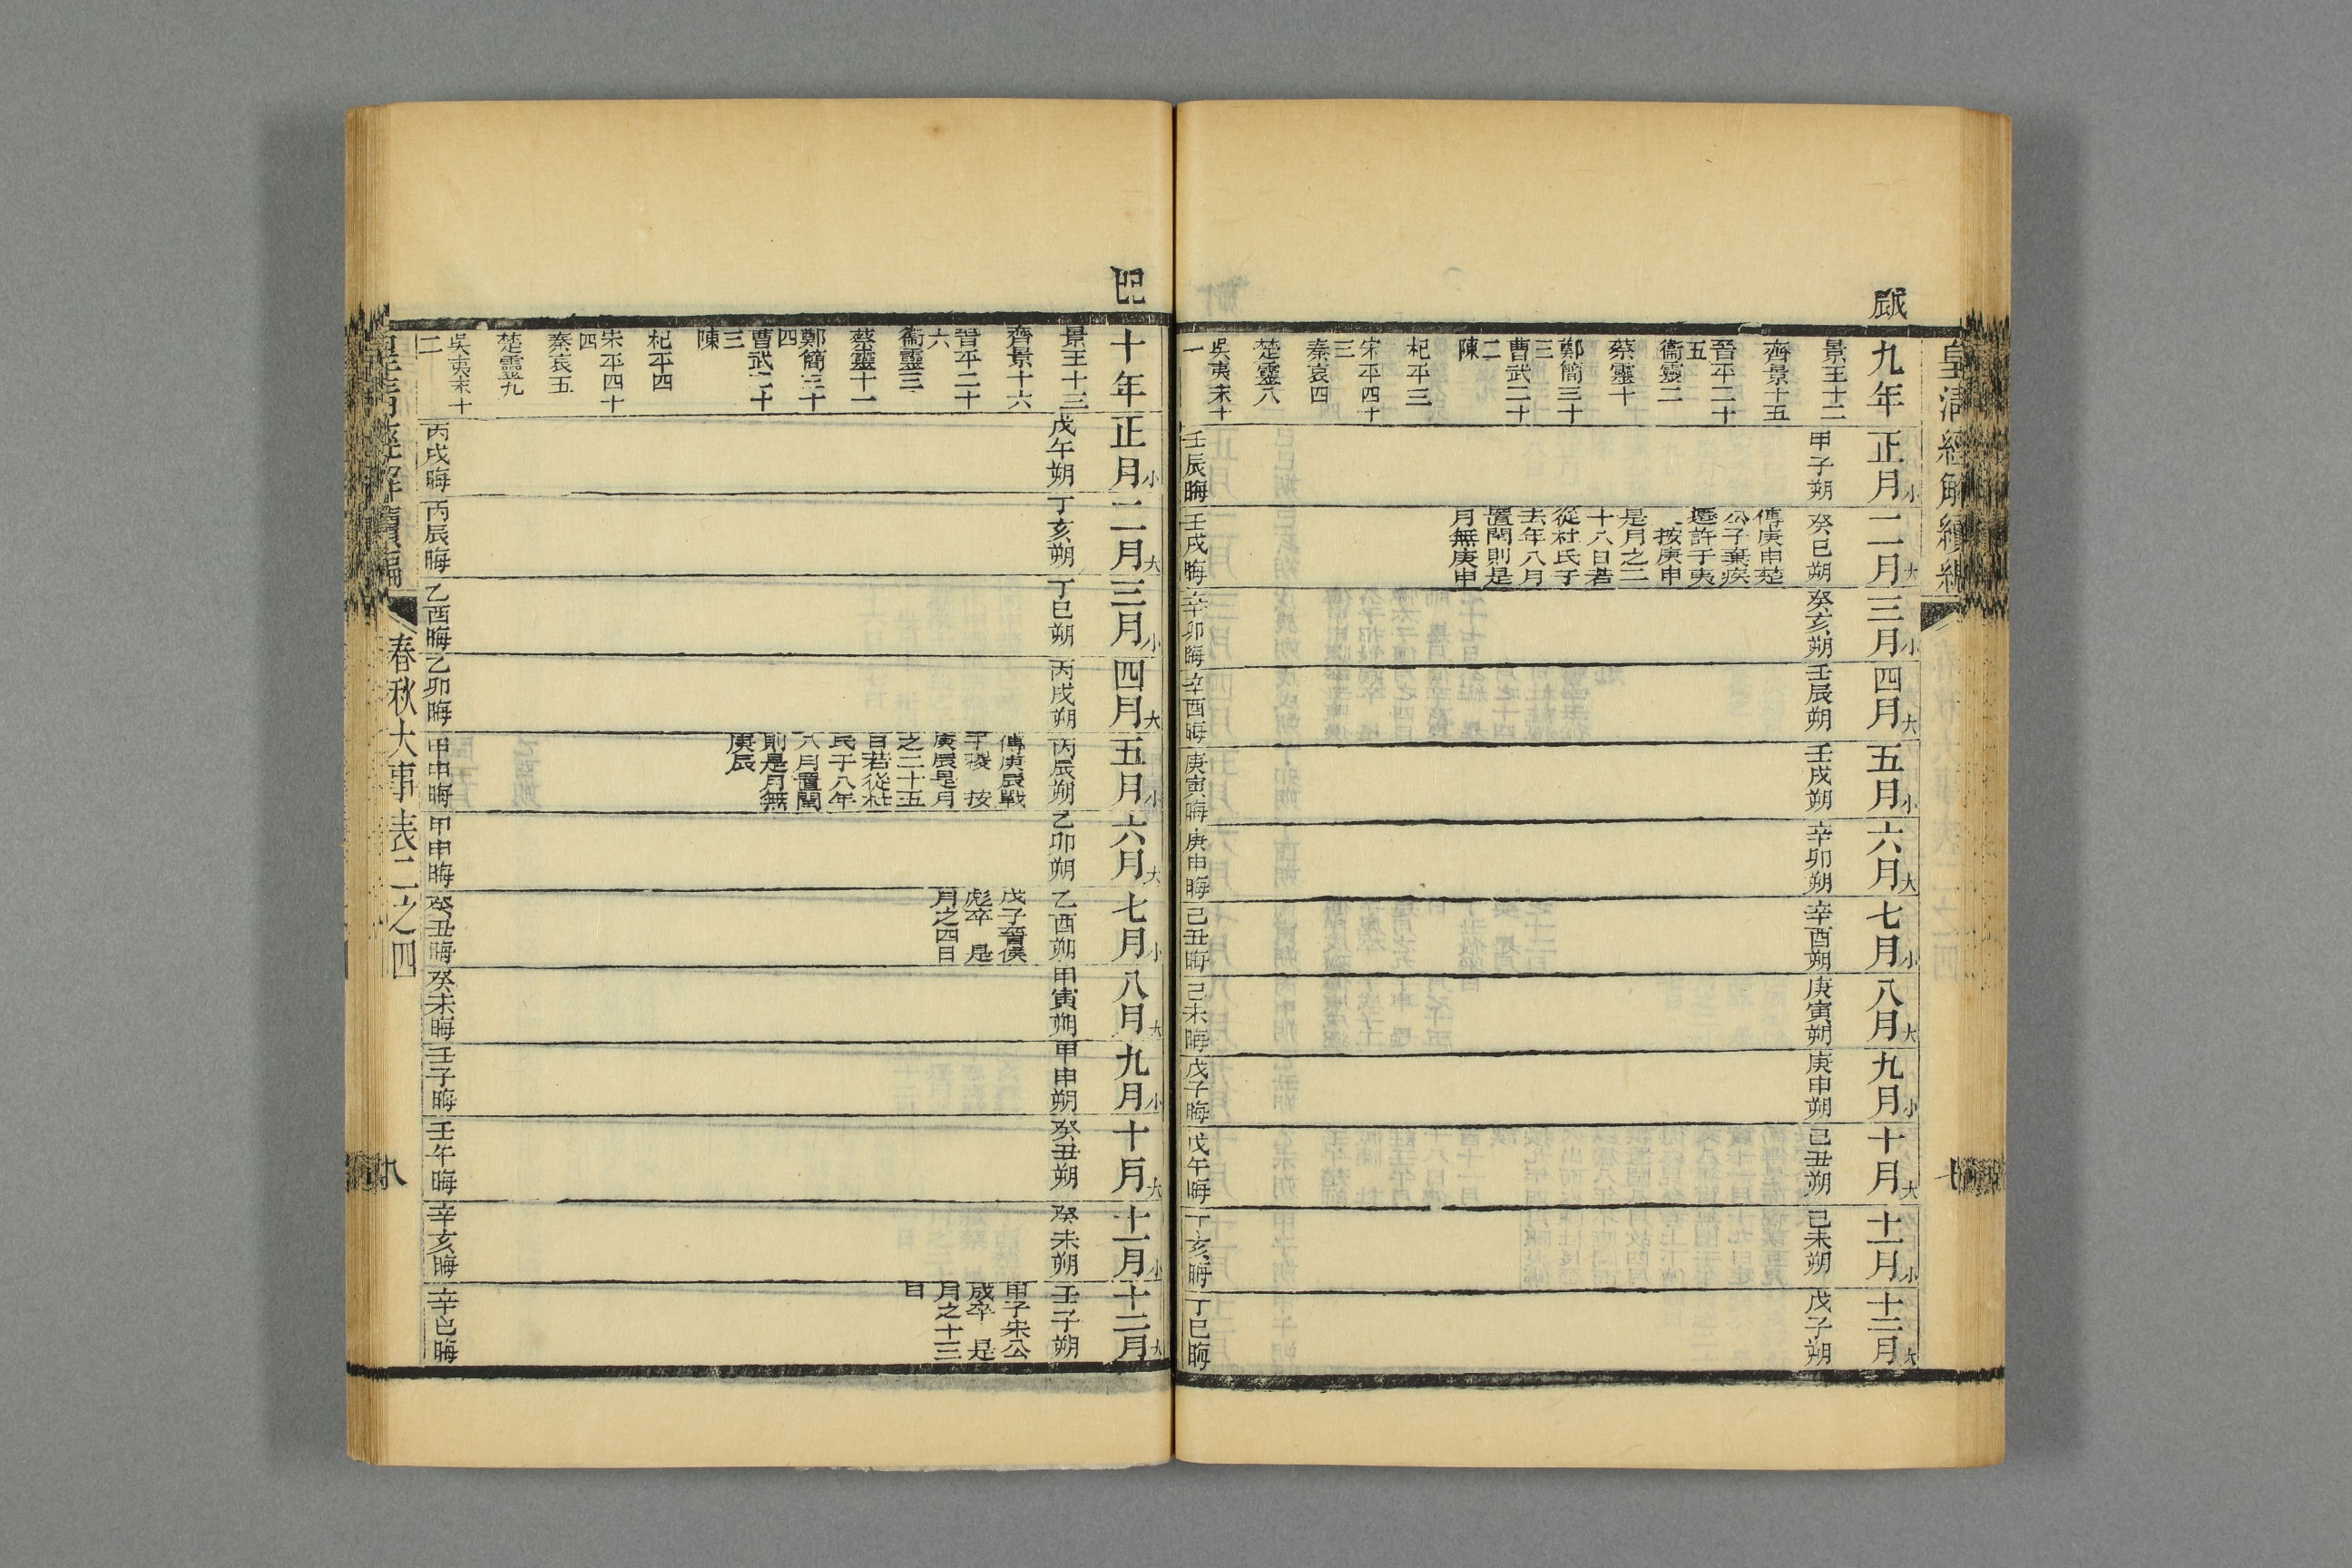 皇清經解續編
七
戊辰
九年
景王十二
齊景十五
晉平二十
五
衞靈二
蔡靈十
鄭簡三十
三
曹武二十
二
陳
杞平三
宋平四十
三
秦哀四
楚靈八
吳夷末十
一
正月小
甲子朔
壬辰晦
二月大
癸巳朔
傳庚申楚
公子棄疾
遷許于夷
按庚申
是月之二
十八日若
從杜氏于
去年八月
置閏則是
月無庚申
壬戌晦
三月小
癸亥朔
辛卯晦
四月大
壬辰朔
辛酉晦
五月小
壬戌朔
庚寅晦
六月大
辛卯朔
庚申晦
七月小
辛酉朔
己丑晦
八月大
庚寅朔
己未晦
九月小
庚申朔
戊子晦
十月大
己丑朔
戊午晦
十一月小
己未朔
丁亥晦
十二月大
戊子朔
丁巳晦
己巳
十年
景王十三
齊景十六
晉平二十
六
衞靈三
蔡靈十一
鄭簡三十
四
曹武二十
三
陳
杞平四
宋平四十
四
秦哀五
楚靈九
吳夷末十
二
正月小
戊午朔
丙戌晦
二月大
丁亥朔
丙辰晦
三月小
丁巳朔
乙酉晦
四月大
丙戌朔
乙卯晦
五月小
丙辰朔
傳庚辰戰
于稷 按
庚辰是月
之二十五
日若從杜
氏于八年
八月置閏
則是月無
庚辰
甲申晦
六月大
乙卯朔
甲申晦
七月小
乙酉朔
戊子晉侯
彪卒 是
月之四日
癸丑晦
八月大
甲寅朔
癸未晦
九月小
甲申朔
壬子晦
十月大
癸丑朔
壬午晦
十一月小
癸未朔
辛亥晦
十二月大
壬子朔
甲子宋公
成卒 是
月之十三
日
辛巳晦
皇清經解續編
春秋大事表二之四
八